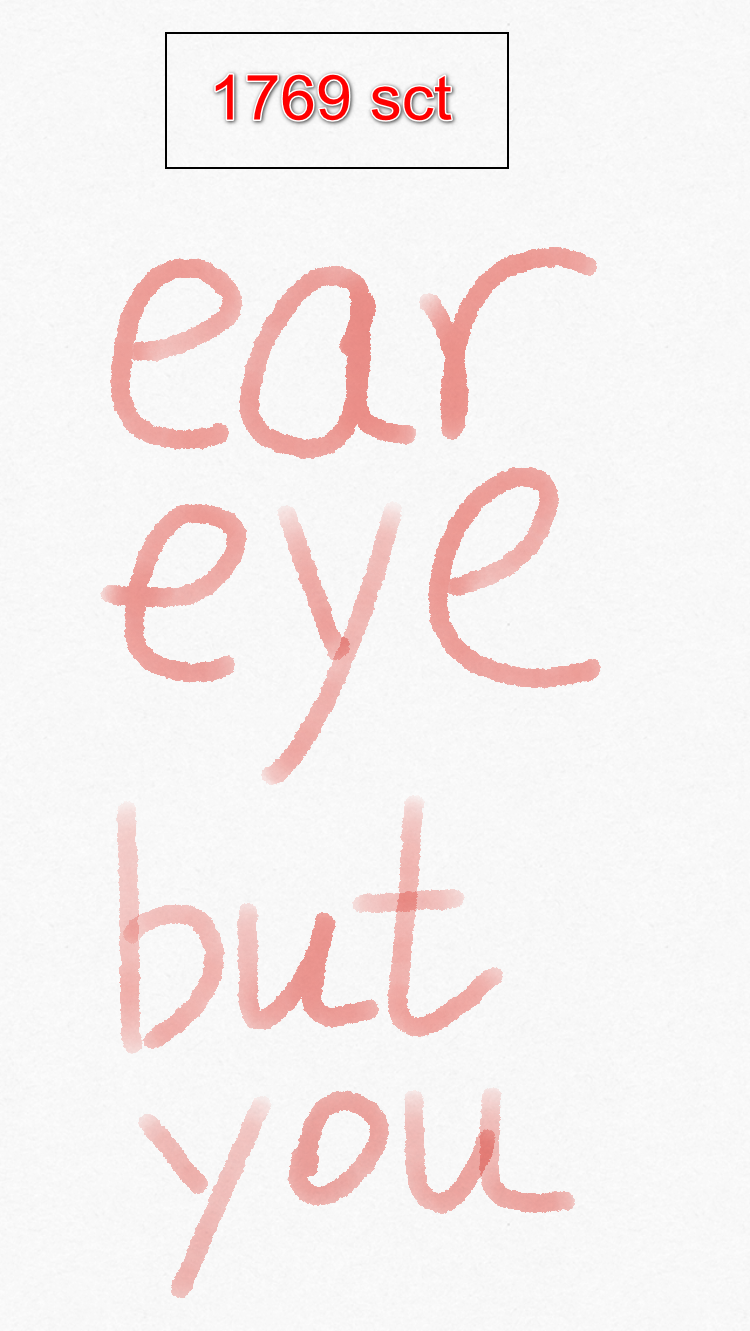 1769 sct
ear
eye
but
you